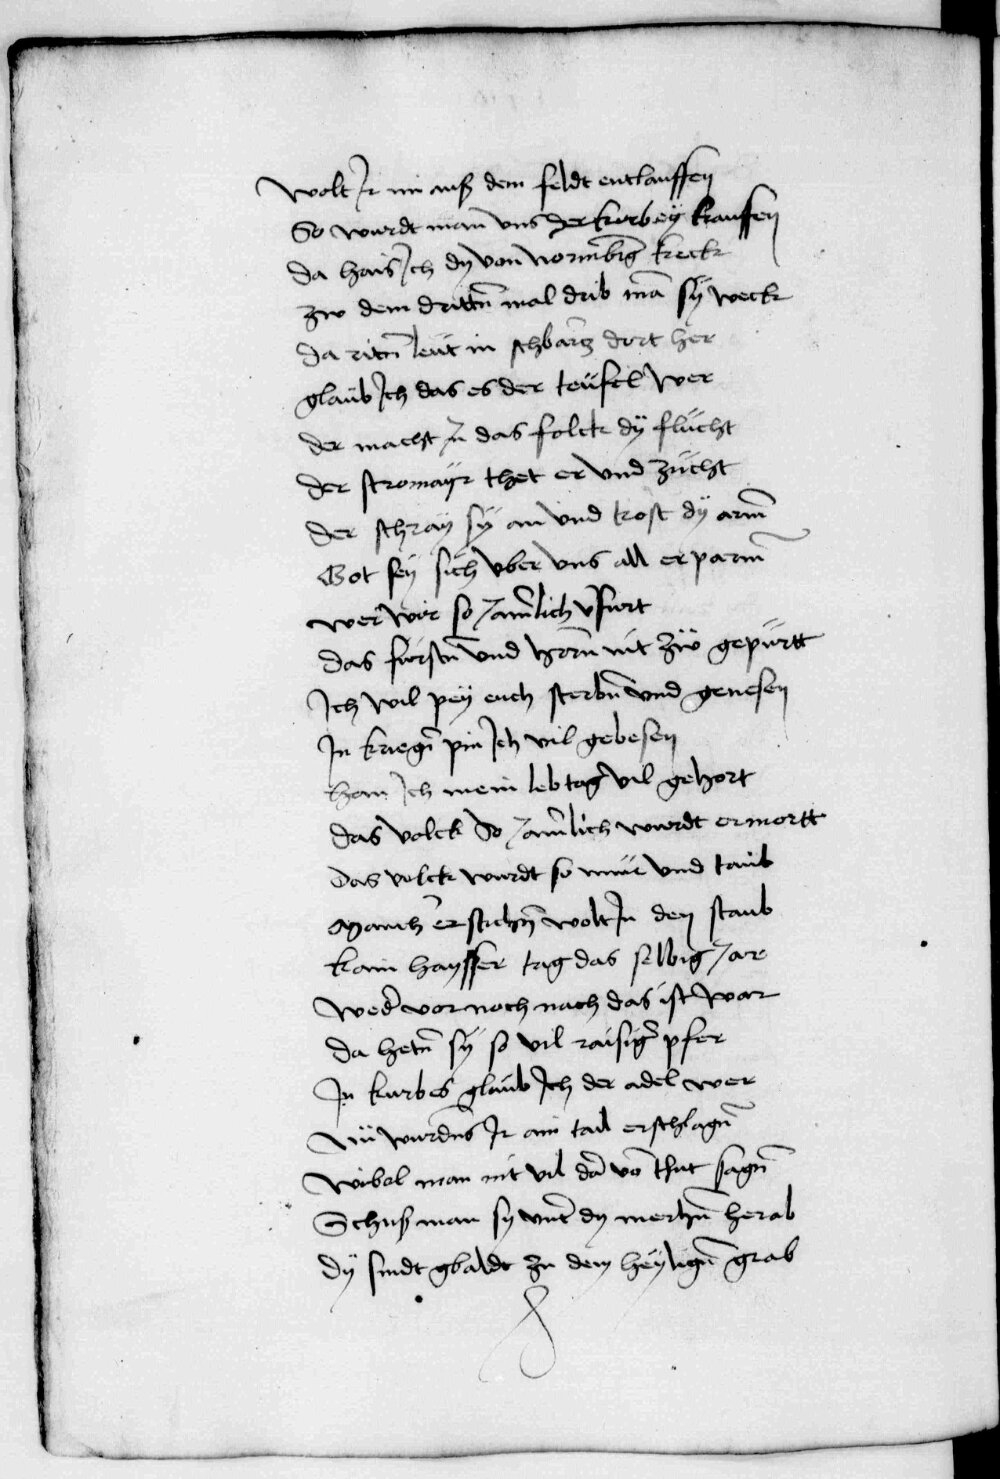 wolt Jr nu auß dem feldt entlauffen
So wurdt man uns der kirbey krauffen
da hais Jch dy von normbrg keck
zw dem drittn mal drib ma sy weck
da ritn leut in schbartz dort her
glaub Jch das es der teufel wer
der macht Jn das folck dy flucht
der stromayr thet er und zucht
der schray sy an und trost dy armn
Got sey sich uber uns all erparmn
wer wir so Jamrlich vfurt
das fursten und hern nit zw gepurtt
Jch wil pey euch sterbn und genesen
Jn kriegn pin Jch vil gebesen
han Jch mein lebtag vil gehort
das volck so Jamrlich wurdt ermortt
das volck wurdt so mud und taub
Manch erstickn wolt Jn den staub
kain haysser tag das selbig Jar
wedr vor noch nach das ist war
da hetn sy so vil raisiger pfer
Jn kurbes glaub Jch der adel wer
nu wurdns Jr ain tail erschlagn
wibol man nit vil da von thut sagn
Schuß man sy unter dy merhn herab
dy sindt gbaldt zu dem heyligen grab